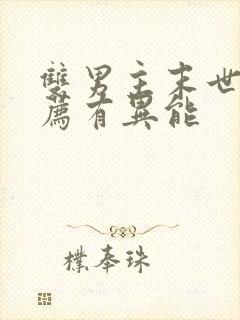 雙男主末世
薦有異能
樸奉珠